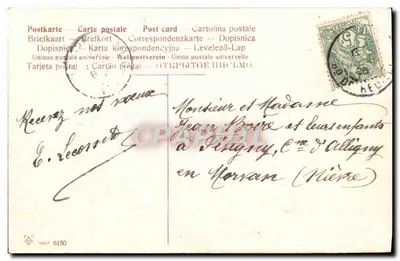 Postkarte — Carte postale — Post card — Cartolina postale
Briefkaart — Brefkort — Correspondenzkarte — Dopisnica
Dopisnice — Karta korespondencyjna — Levelező-Lap
Unione postale universelle — Weltpostverein — Unión postal universelle
Tarjeta postal — Cartão postal — ОТКРЫТОЕ ПИСЬМО
Recevez nos voeux
E. Lecossit
Monsieur et Madame
Jean et leurs enfants
à Cne d'Alligny
en Morvan (Nièvre)
6150